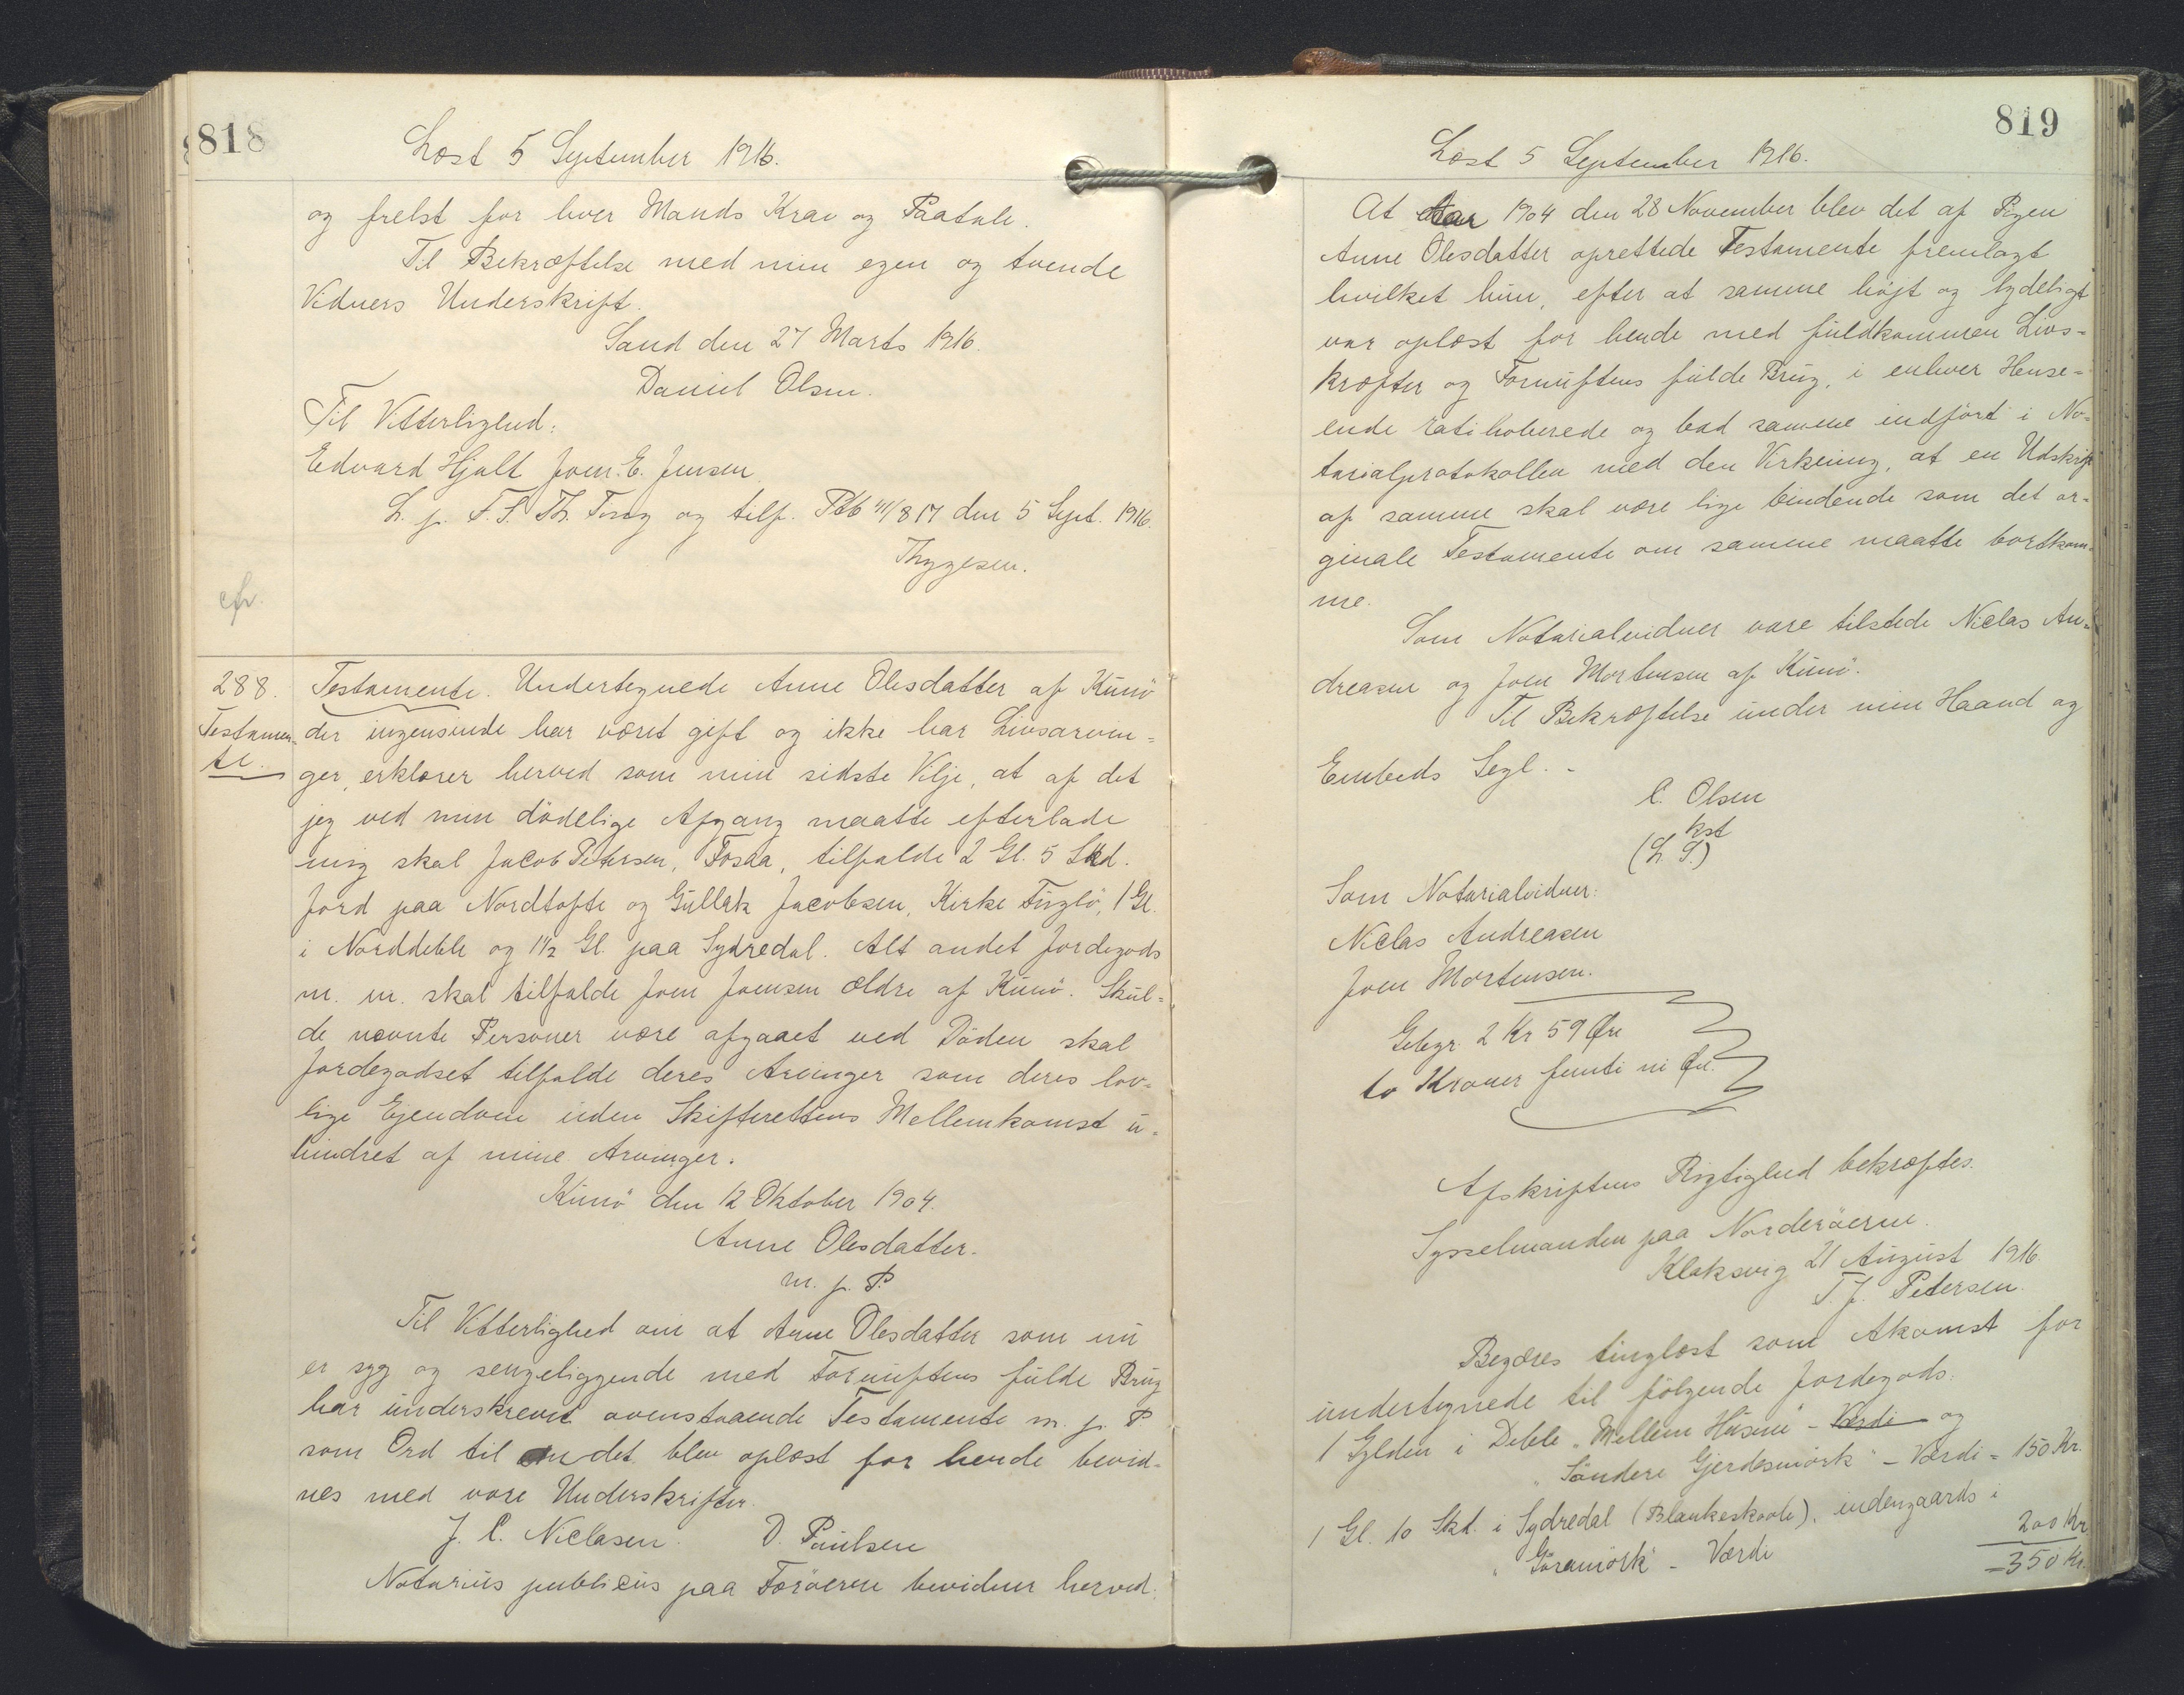 818
Læst 5 September 1916.
og frelst for hver Mands Krav og Paatale.
Til Bekræftelse med min egen og tvende
Vidners Underskrift.
Sand den 27 Marts 1916.
Daniel Olsen.
Til Vitterlighed:
Edvard Hjalt Joen. E. Jensen
L. p. F. S. Th. Ting og tilf. Ptb 41/817 den 5 Sept. 1916.
Thygesen.
cfr.
288. Testamente. Undertegnede Anne Olesdatter af Kunö
Testamen- der ingensinde har været gift og ikke har Livsarvin-
te. ger, erklærer herved som min sidste Vilje, at af det
jeg ved min dödelige Afgang maatte efterlade
mig skal Jacob Petersen, Fosaa, tilfalde 2 Gl. 5 Skd.
Jord paa Nordtofte og Gullak Jacobsen, Kirke Fuglö, 1 Gl.
i Norddeble og 1½ Gl. paa Sydredal. Alt andet Jordegods
m. m. skal tilfalde Joen Joensen ældre af Kunö. Skul-
de nævnte Personer være afgaaet ved Döden skal
Jordegodset tilfalde deres Arvinger som deres lov-
lige Ejendom uden Skifterettens Mellemkomst u-
hindret af mine Arvinger.
Kunö den 12 Oktober 1904.
Anne Olesdatter.
m. f. P.
Til Vitterlighed om at Anne Olesdatter som nu
er syg og sengeliggende med Fornuftens fulde Brug
har underskrevet ovenstaaende Testamente m. f. P
som Ord til andet blev oplæst for hende bevid-
nes med vore Underskrifter.
J. C. Niclasen. D. Poulsen
Notarius publicus paa Færöerne bevidner herved:
819
Læst 5 September 1916.
At Aar 1904 den 28 November blev det af Pigen
Anne Olesdatter oprettede Testamente fremlagt
hvilket hun, efter at samme höjt og tydeligt
var oplæst for hende med fuldkommen Livs-
kræfter og Fornuftens fulde Brug, i enhver Hense-
ende ratihaberede og bad samme indfört i No-
tarialprotokollen med den Virkning, at en Udskrift
af samme skal være lige bindende som det or-
ginale Testamente om samme maatte bortkom-
me.
Som Notarialvidner vare tilstede Niclas An-
dreasen og Joen Mortensen af Kunö.
Til Bekræftelse under min Haand og
Embeds Segl. -
C. Olsen
kst
(L. S.)
Som Notarialvidner:
Niclas Andreasen
Joen Mortensen.
Gebyr. 2 Kr 59 Øre
to Kroner femti ni Øre.
Afskriftens Rigtighed bekræftes.
Sysselmanden paa Norderöerne.
Klaksvig 21 August 1916.
T. J. Petersen.
Begæres tinglæst som Akomst for
undertegnede til fölgende Jordegods:
1 Gylden i Deble "Mellem Husene" - Værdi og
"Söndere Gjerdesmörk" - Værdi = 150 Kr.
1 Gl. 10 Skd. i Sydredal (Blankeskaale), indengaards i
"Göramörk" - Værdi 200 Kr
= 350 Kr.